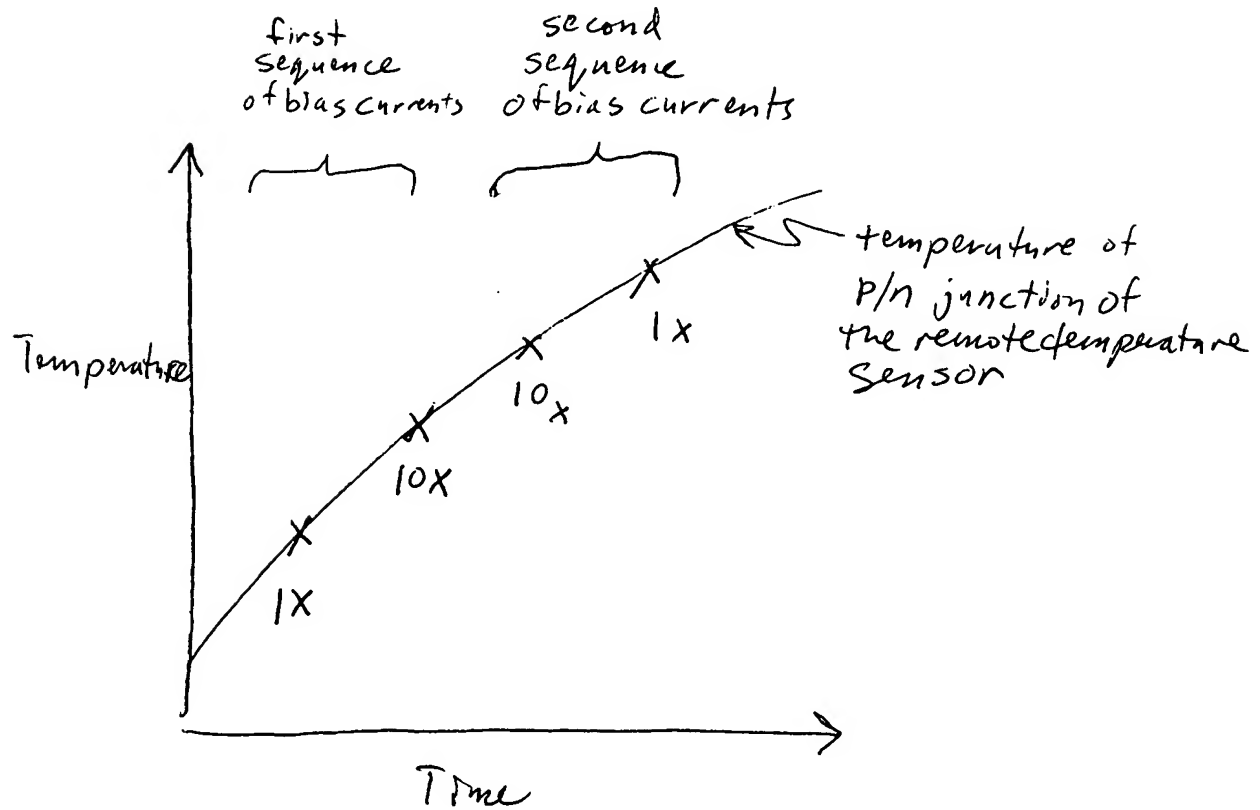 first
sequence
of bias currents
second
sequence
of bias currents
Temperature
temperature of
p/n junction of
the remote temperature
sensor
1X
10X
10x
1x
Time